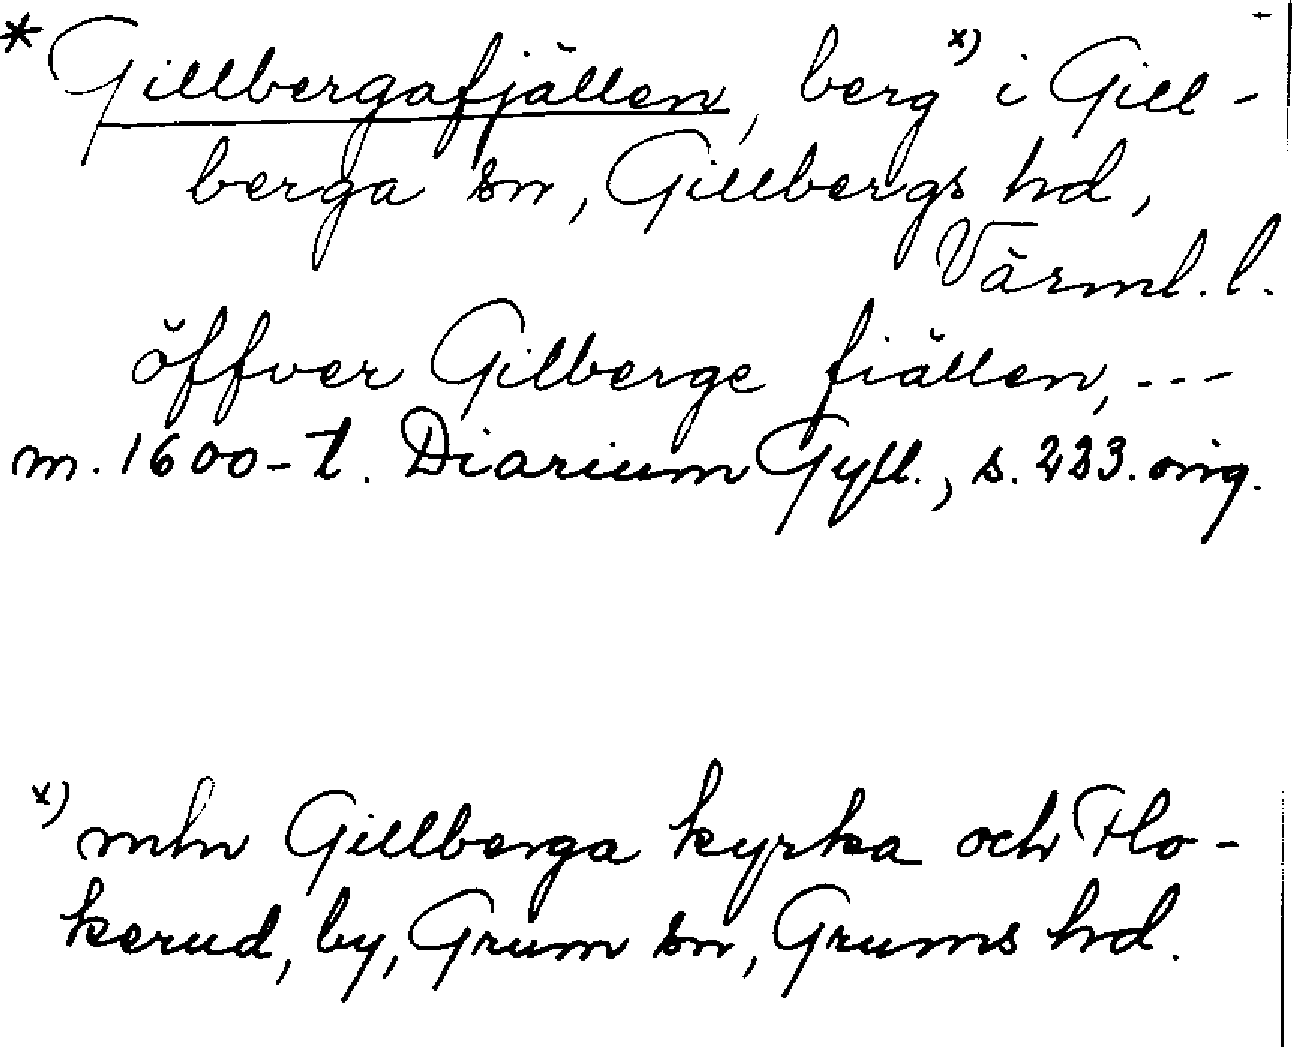 * Gillbergafjällen, berg x) i Gill-
berga sn, Gillbergs hd,
Värml. l.
öffver Gilberge fiällen, ---
m. 1600-t. Diarium Gyll., s. 233. orig.
x) mln Gillberga kyrka och Flo-
kerud, by, Grum sn, Grums hd.